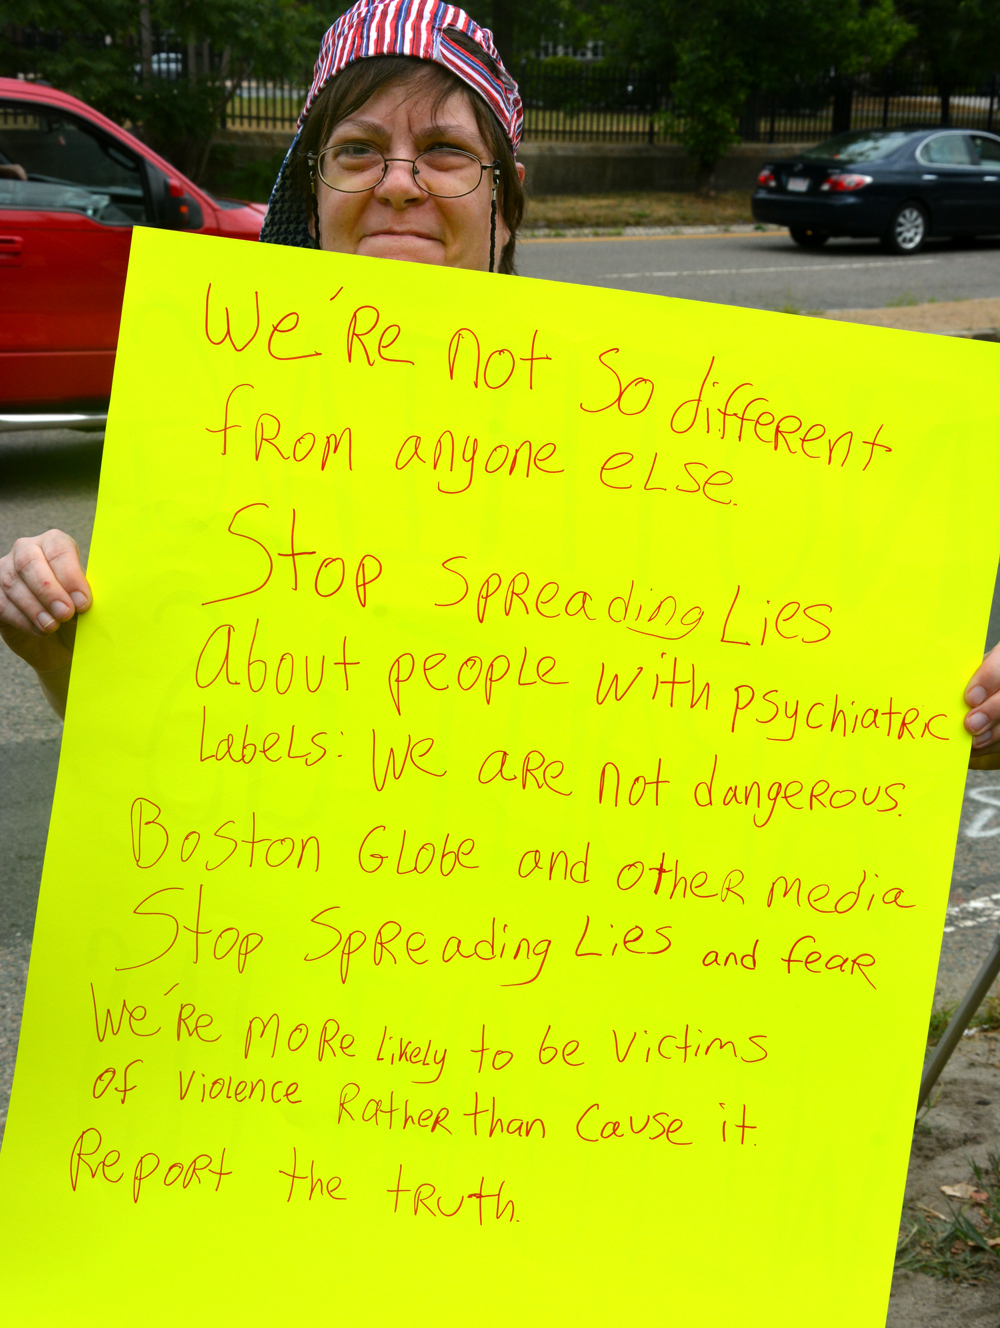 We're not so different
from anyone else.
Stop spreading Lies
about people with psychiatric
Labels: We are not dangerous.
Boston Globe and other media
Stop Spreading Lies and fear
We're more likely to be victims
of violence Rather than cause it.
Report the truth.